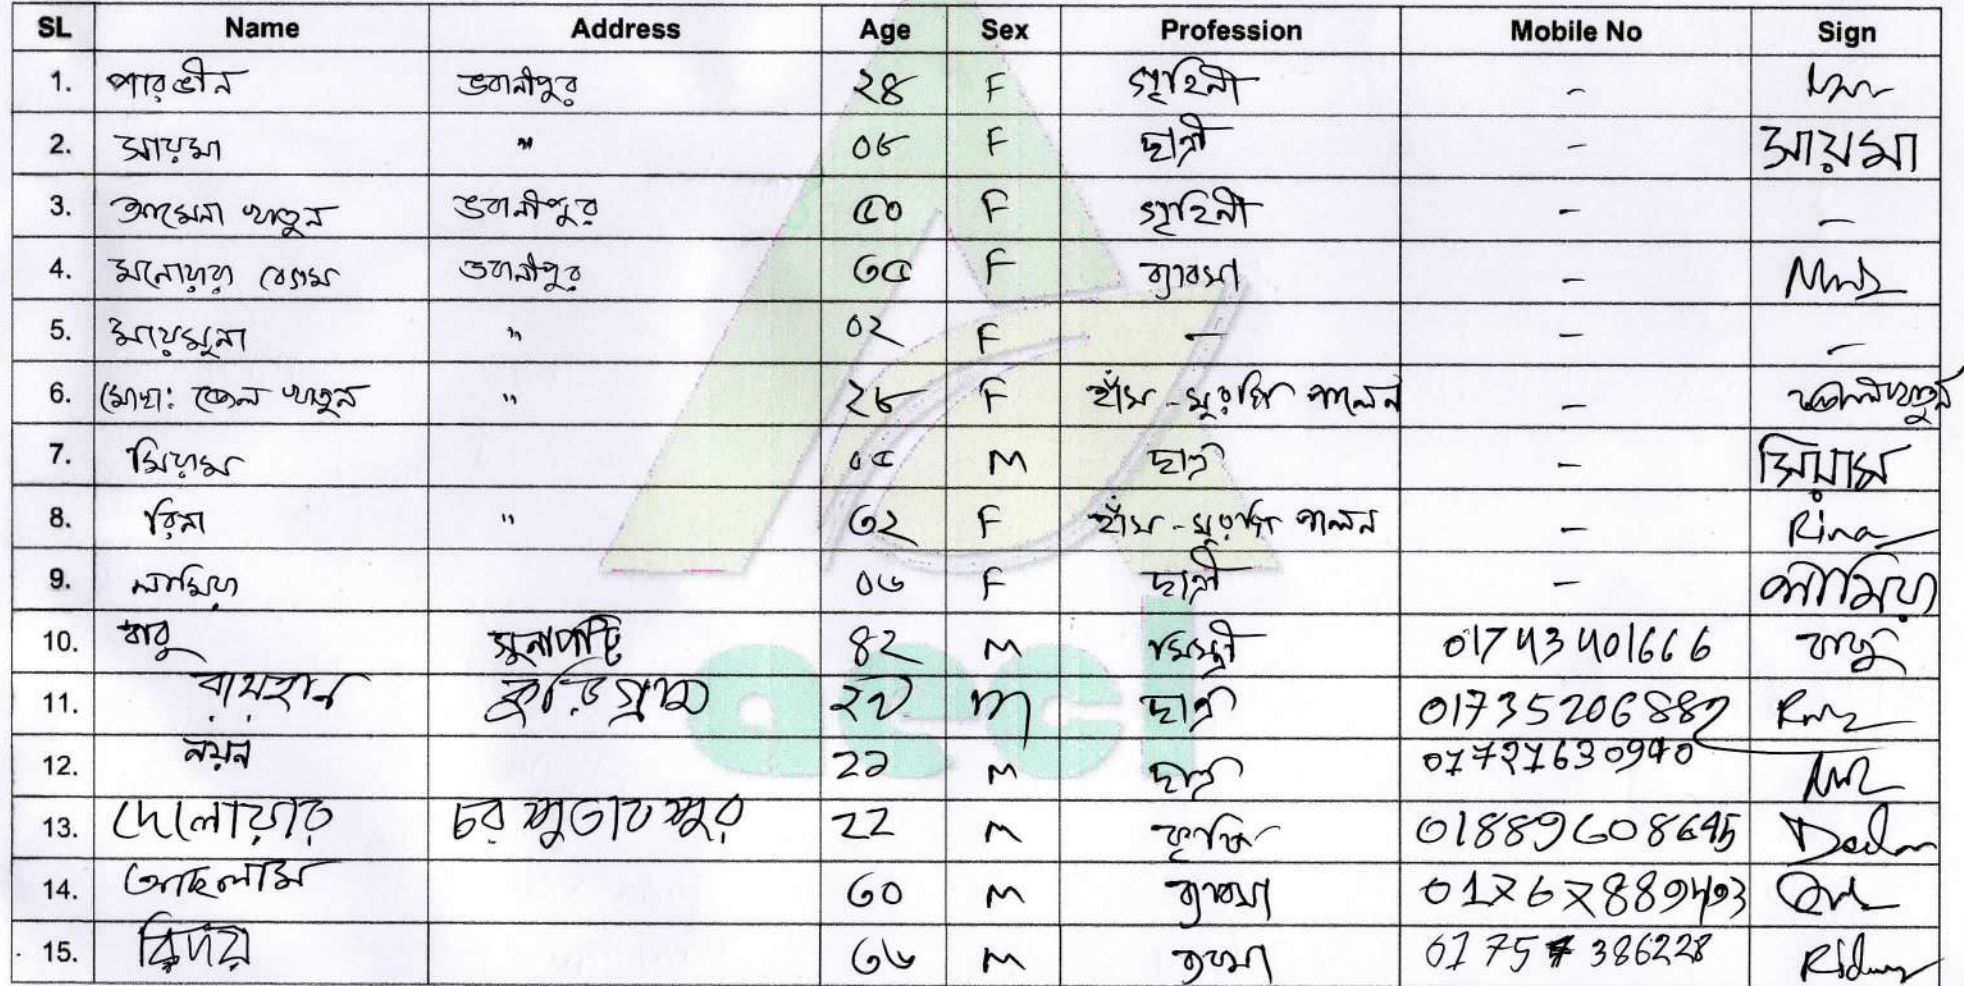 SL Name Address Age Sex Profession Mobile No Sign
1. পারভীন ভবানীপুর ২৪ F গৃহিনী -
2. সায়মা " ০৮ F ছাত্রী - সায়মা
3. আমেনা খাতুন ভবানীপুর ৫০ F গৃহিনী - -
4. মনোয়ারা বেগম ভবানীপুর ৩৫ F ব্যাবসা -
5. মায়মুনা " ০২ F - - -
6. মোছা: খাতুন " ২৮ F হাঁস-মুরগি পালন -
7. সিয়াম " ০৫ M ছাত্র - সিয়াম
8. রিনা " ৩২ F হাঁস-মুরগি পালন - Rina
9. লামিয়া " ০৬ F ছাত্রী - লামিয়া
10. বাবু সুনাপট্টি ৪২ M মিস্ত্রী 01743401666 বাবু
11. রায়হান কুড়িগ্রাম m ছাত্র 01735206882
12. নয়ন ২১ M ছাত্র 01721630940
13. দেলোয়ার চর 22 M কৃষি 01889608645
14. আছলাম ৩০ M ব্যাবসা
15. রিদয় ৩৬ M ব্যবসা 01757386228
aeci